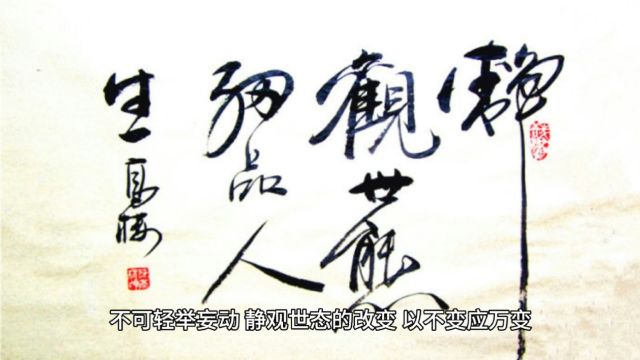 靜
觀世態
細品人
生
不可轻举妄动 静观世态的改变 以不变应万变